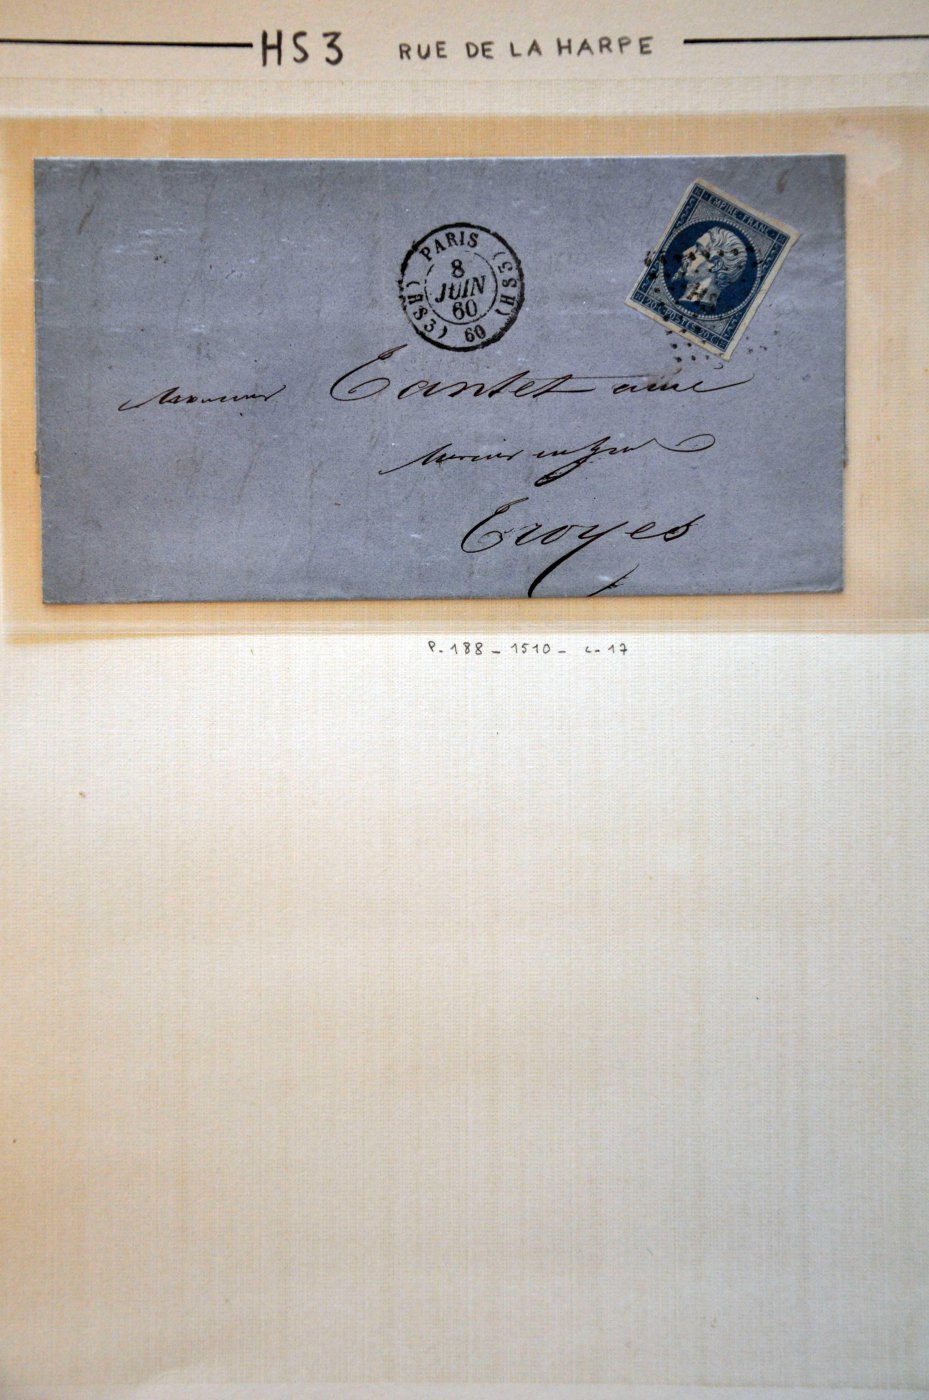 HS3 RUE DE LA HARPE
PARIS
(HS3)
(HS3)
8
JUIN
60
60
EMPIRE FRANC
20 c POSTES 20 c
Monsieur Cantet ainé
Mercier en gros
Troyes
P. 188 - 1510 - c. 17